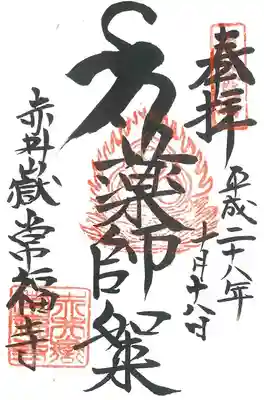 奉拝
平成二十八年
十月十八日
薬師如来
赤井嶽常福寺